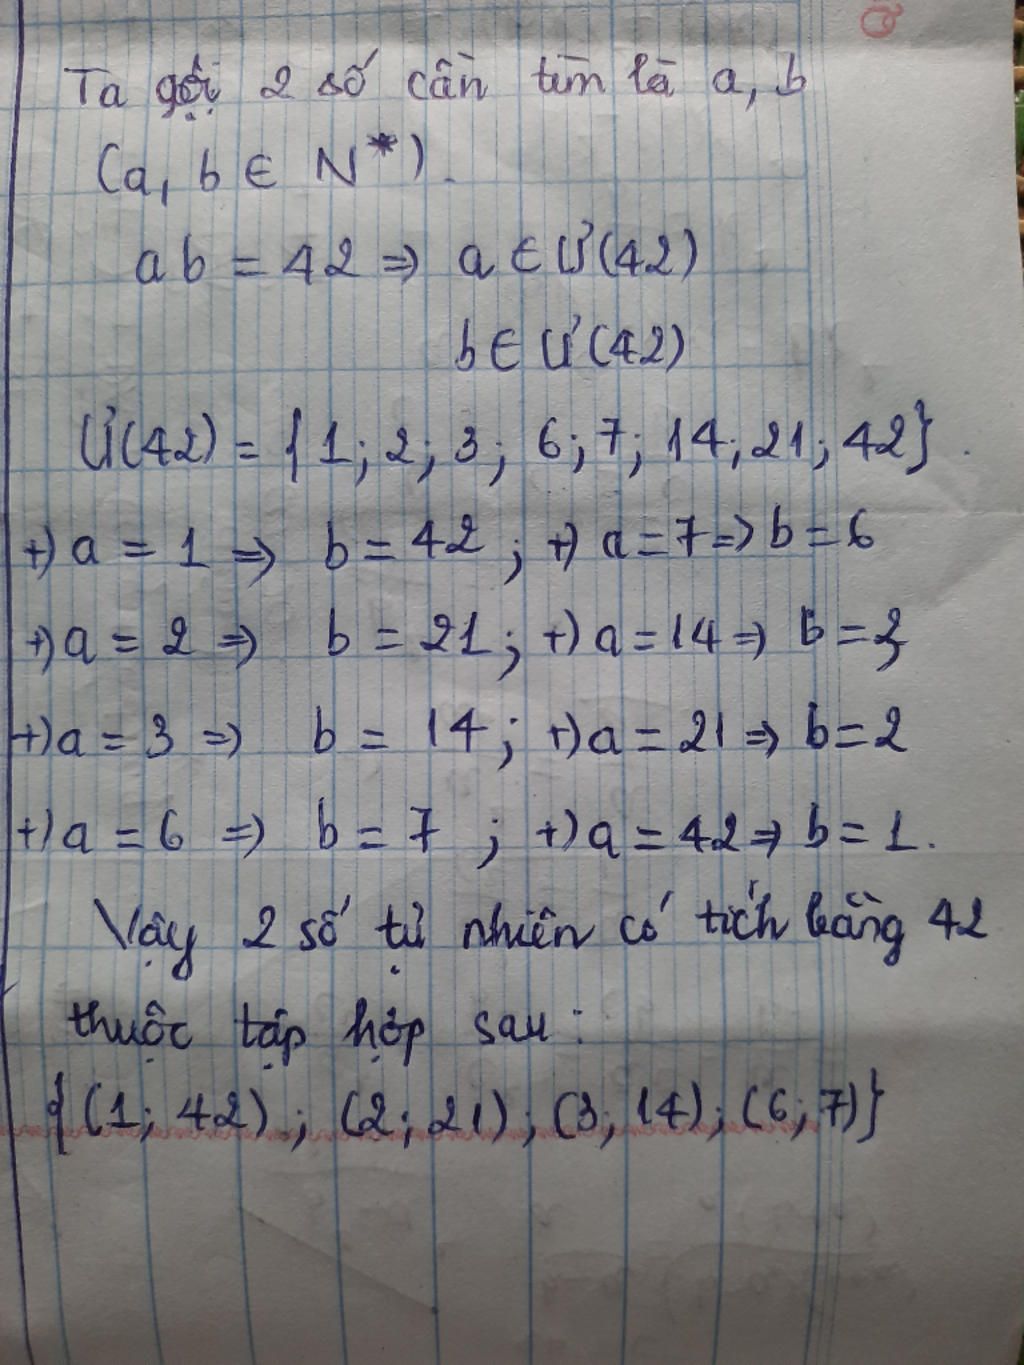 Ta gọi 2 số cần tìm là a, b
(a, b ∈ N*).
ab = 42 => a ∈ Ư(42)
b ∈ Ư(42)
Ư(42) = {1; 2; 3; 6; 7; 14; 21; 42}.
+) a = 1 => b = 42 ; +) a = 7 => b = 6
+) a = 2 => b = 21 ; +) a = 14 => b =
+) a = 3 => b = 14 ; +) a = 21 => b = 2
+) a = 6 => b = 7 ; +) a = 42 => b = 1.
Vậy 2 số tự nhiên có tích bằng 42
thuộc tập hợp sau :
{(1; 42) ; (2; 21) ; (3; 14) ; (6; 7)}